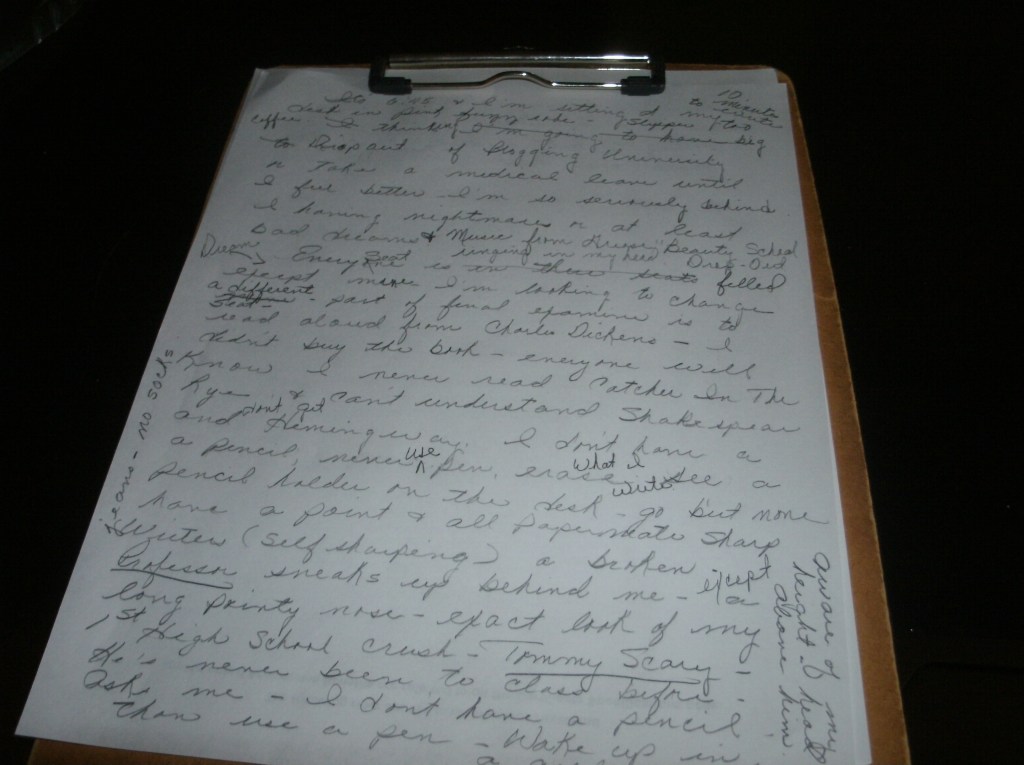 10
Its 6:45 & I'm sitting at my
desk in pink fuzzy robe slippers to
coffee I think I'm going to have big
to Drop out of Blogging University
or Take a medical leave until
I feel better I'm so seriously behind
I having nightmares or at least
bad dreams & Music from Grease "Beauty School
Drop-Out ringing in my head
Dream
Every seat is in filled
except mine I'm looking to change
a different
seat - part of final is to
read aloud from Charles Dickens - I
didn't buy the book - everyone will
Know I never read Catcher In The
Rye & Can't understand Shakespear
don't get
and Hemingway. I don't have a
a pencil, never use pen, erase what I write see a
pencil holder on the desk - go but none
have a point & all Papermate Sharp
Writer (self sharping) a broken
Professor sneaks up behind me - except a
long pointy nose - exact look of my
1st High School crush - Tommy Scary -
He's never been to class before
ask me - I don't have a pencil
than use a pen - Wake up in
jeans - no socks
aware of my
height & head
above him.